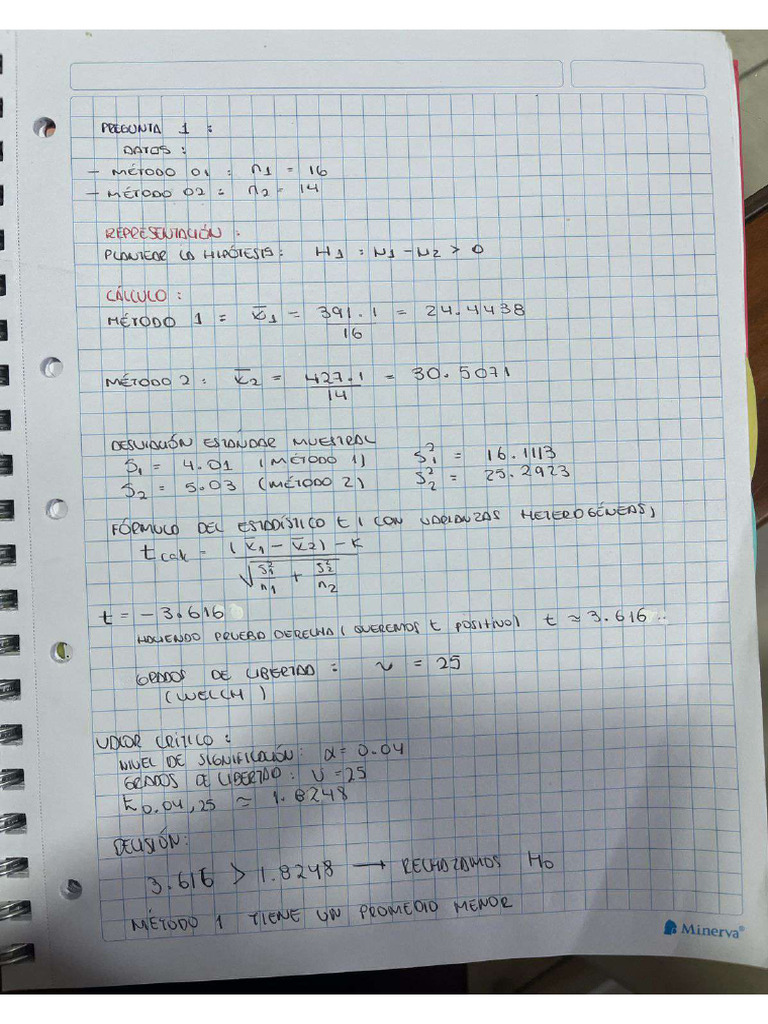 PREGUNTA 1 :
DATOS :
- MÉTODO 01 : n1 = 16
- MÉTODO 02 : n2 = 14
REPRESENTACIÓN :
PLANTEAR LA HIPÓTESIS : H1 : μ1 - μ2 > 0
CÁLCULO :
MÉTODO 1 = x̄1 = 391.1 / 16 = 24.4438
MÉTODO 2 : x̄2 = 427.1 / 14 = 30.5071
DESVIACIÓN ESTÁNDAR MUESTRAL
S1 = 4.01 (MÉTODO 1) S1² = 16.1113
S2 = 5.03 (MÉTODO 2) S2² = 25.2923
FÓRMULA DEL ESTADÍSTICO t ( CON VARIANZAS HETEROGÉNEAS)
t calc = (x̄1 - x̄2) - K / √(S1²/n1 + S2²/n2)
t = -3.616
HACIENDO PRUEBA DERECHA ( QUEREMOS t POSITIVO) t ≈ 3.616..
GRADOS DE LIBERTAD = ν = 25
(WELCH)
VALOR CRÍTICO :
NIVEL DE SIGNIFICACIÓN : α = 0.04
GRADOS DE LIBERTAD : ν = 25
t 0.04, 25 ≈ 1.8248
DECISIÓN:
3.616 > 1.8248 → RECHAZAMOS H0
MÉTODO 1 TIENE UN PROMEDIO MENOR
Minerva®